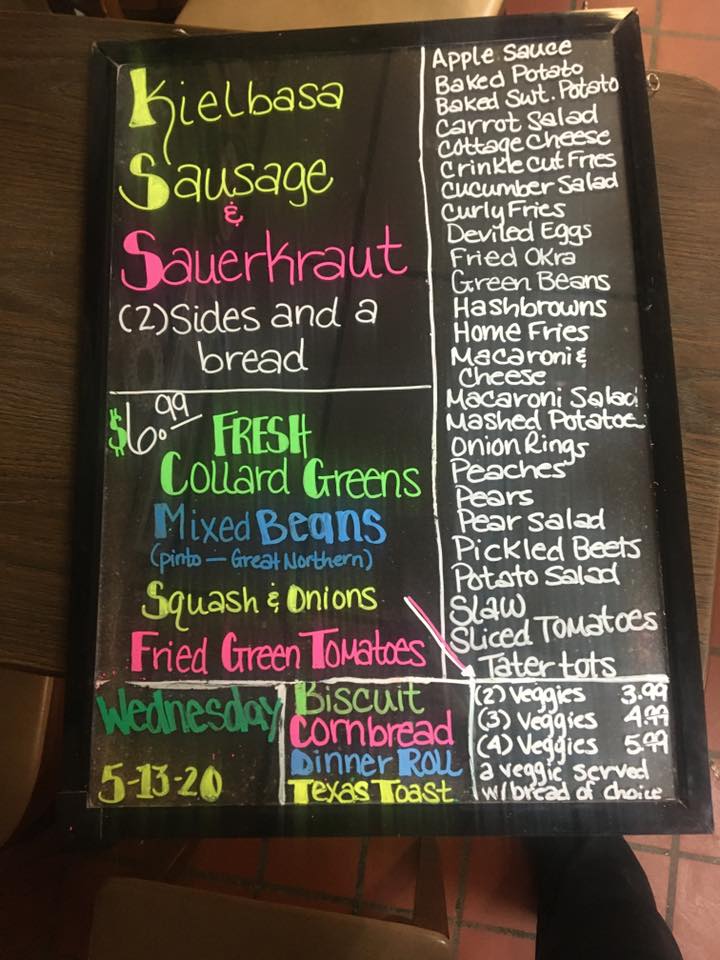 Kielbasa
Sausage
&
Sauerkraut
(2) Sides and a
bread
$6.99
FRESH
Collard Greens
Mixed Beans
(pinto — Great Northern)
Squash & Onions
Fried Green Tomatoes
Wednesday
5-13-20
Biscuit
Cornbread
Dinner Roll
Texas Toast
Apple Sauce
Baked Potato
Baked Swt. Potato
Carrot Salad
Cottage Cheese
Crinkle Cut Fries
Cucumber Salad
Curly Fries
Deviled Eggs
Fried Okra
Green Beans
Hashbrowns
Home Fries
Macaroni &
Cheese
Macaroni Salad
Mashed Potatoe
Onion Rings
Peaches
Pears
Pear Salad
Pickled Beets
Potato Salad
Slaw
Sliced Tomatoes
Tater tots
(2) Veggies 3.99
(3) Veggies 4.99
(4) Veggies 5.99
a veggie served
w/ bread of choice